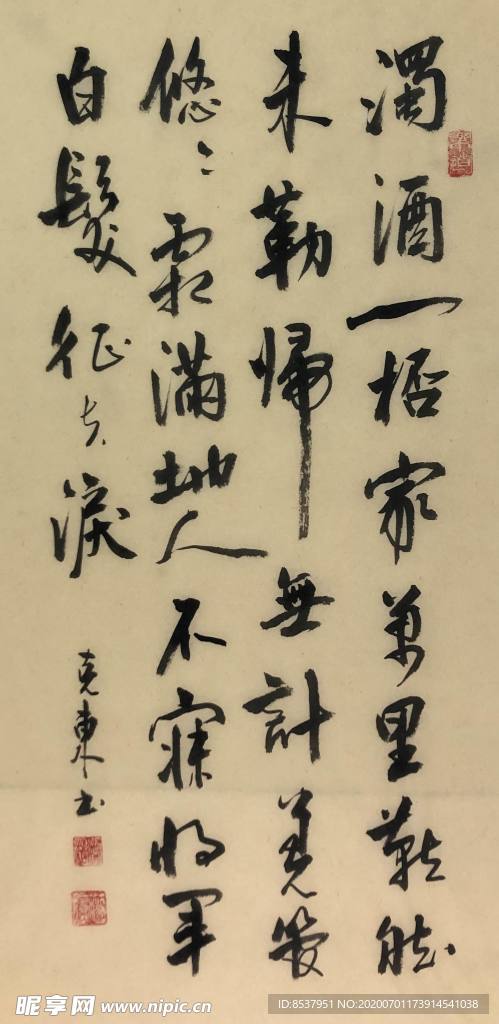 濁酒一桮家萬里燕然
未勒帰無計羌管
悠〻霜滿地人不寐將軍
白髮征夫淚
克東书
昵享网 www.nipic.cn
ID:8537951 NO:20200701173914541038